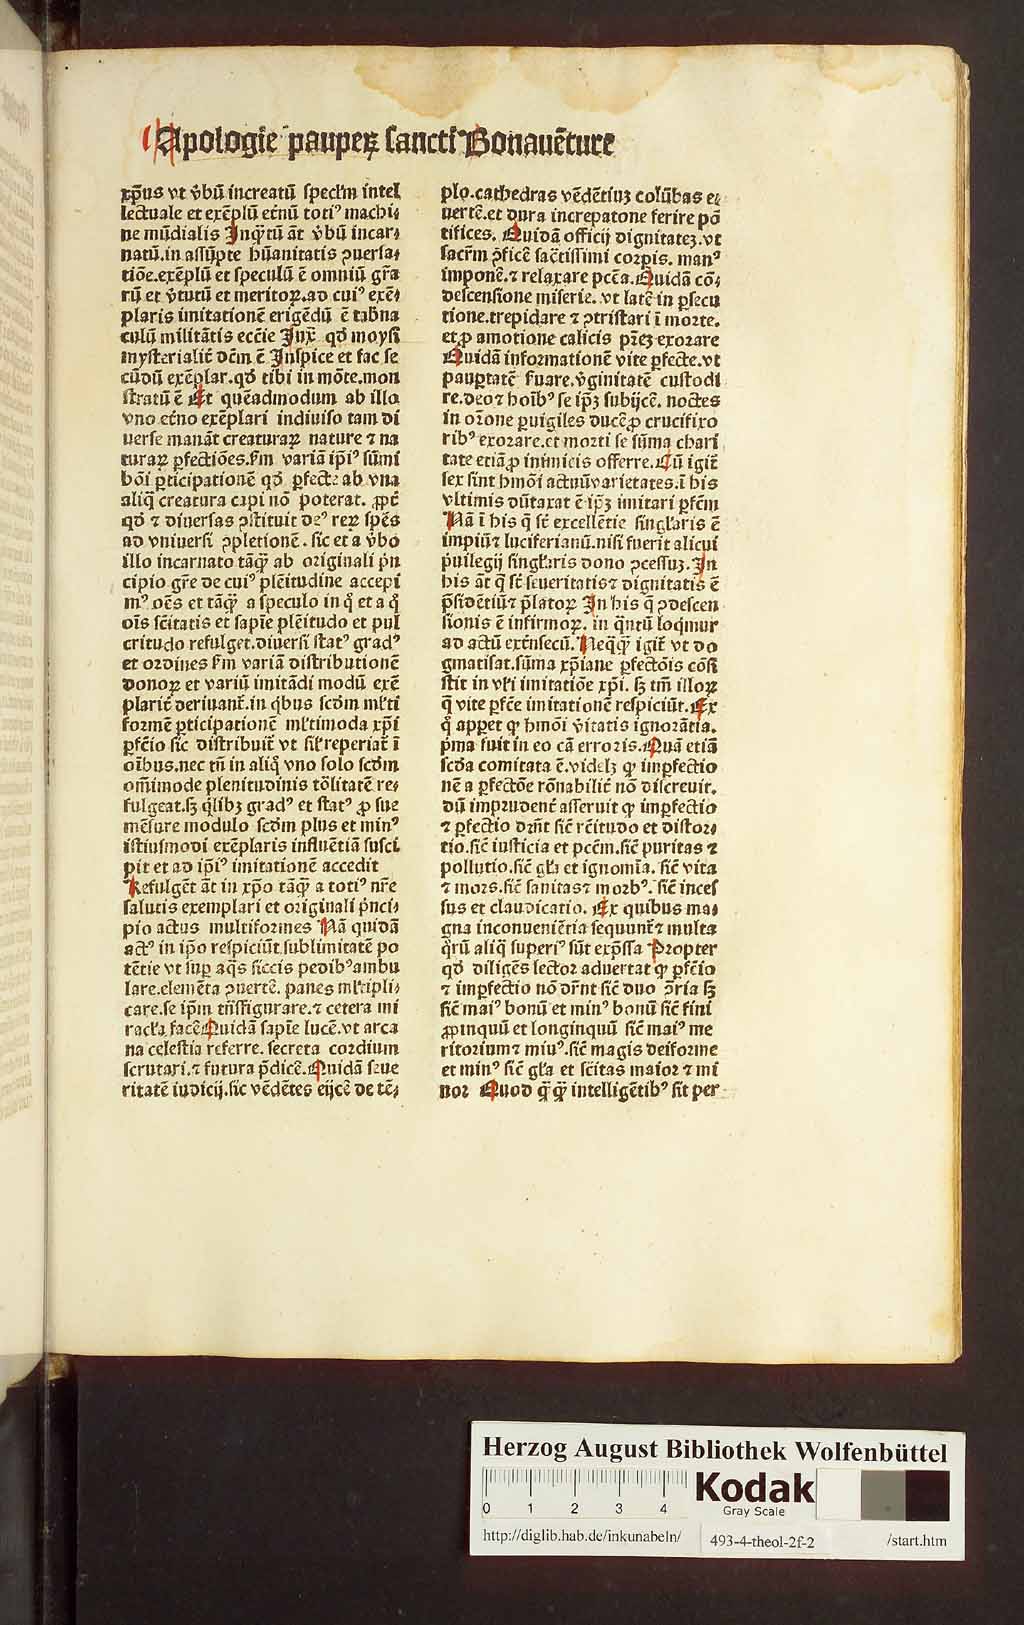 Apologie pauperꝝ sancti Bonauēture
xp̄us vt v̄bū increatū specl̓m intel
lectuale et exēplū et̓nū toti⁹ machi⸗
ne mūdialis Inq̄tū āt v̄bū incar⸗
natū.in assūpte hūanitatis ꝯuersa⸗
tiōe.exēplū et speculū ē omniū gr̄a
rū et v̓tutū et meritoꝝ.ad cui⁹ exē⸗
plaris imitationē erigēdū ē tab̓na
culū militātis eccīe Iux̄ qd̄ moysi
mysterialit̓ dc̄m ē Inspice et fac se
cūdū exēplar.qd̄ tibi in mōte.mon
stratū ē Et quēadmodum ab illo
vno et̓no exēplari indiuiso tam di
uerse manāt creaturaꝝ nature ⁊ na
turaꝝ ꝑfectiōes.km̄ variā ip̄i⁹ sūmi
bōi ꝑticipationē qd̄ ꝑfecte ab vna
aliq̄ creatura capi nō poterat. ꝓpt̓
qd̄ ⁊ diuersas ꝯstituit de⁹ reꝝ sp̄es
ad vniuersi ꝯpletionē. sic et a v̓bo
illo incarnato tāq̄ȝ ab originali p̓n
cipio gr̄e de cui⁹ plēitudine accepi
m⁹ oēs et tāq̄ȝ a speculo in q̊ et a q̊
oīs sc̄itatis et sapīe plēitudo et pul
critudo refulget.diuersi stat⁹ grad⁹
et ordines km̄ variā distributionē
donoꝝ et variū imitādi modū exē
plarit̓ deriuant̓.in q̓bus scd̄m ml̓ti
formē ꝑticipationē ml̓timoda xp̄i
ꝑfc̄io sic distribuit̓ vt sil̓ reperiat̓ ī
oībus.nec tn̄ in aliq̊ vno solo scd̄m
om̄imode plenitudinis tōlitatē re⸗
fulgeat.sȝ q̓libȝ grad⁹ et stat⁹ ꝓ sue
mēsure modulo scd̄m plus et min⁹
istiusmodi exēplaris influētiā susci
pit et ad ip̄i⁹ imitationē accedit
Refulgēt āt in xp̄o tāq̄ȝ a toti⁹ nr̄e
salutis exemplari et originali p̓nci⸗
pio actus multiformes Nā quidā
act⁹ in ip̄o respiciūt sublimitatē po
tētie vt suꝑ aq̄s siccis pedib⁹ ambu
lare.elemēta ꝯuertē. panes ml̓tipli⸗
care.se ip̄m trn̄sfigurare.⁊ cetera mi
racl̓a facē Quidā sapīe lucē.vt arca
na celestia referre. secreta cordium
scrutari.⁊ futura p̄dicē.Quidā seue
ritatē iudicij.sic vēdētes eijcē de tē⸗
plo.cathedras vēdētiuȝ colūbas e⸗
uertē.et dura increpatone ferire pō
tifices. Quidā officij dignitateȝ.vt
sacrm̄ ꝓficē sac̄tissimi corpis. man⁹
imponē.⁊ relaxare pcc̄a.Quidā cō⸗
descensione miserie. vt latē in ꝑsecu
tione.trepidare ⁊ ꝯtristari ī morte.
et ꝓ amotione calicis pr̄eȝ exorare
Quidā informationē vite ꝑfecte.vt
pauꝑtatē suare.v̓ginitatē custodi
re.deo ⁊ hoīb⁹ se ip̄ȝ subijcē. noctes
in or̄one ꝑuigiles ducē ꝓ crucifixo
rib⁹ exorare.et morti se sūma chari
tate etiā ꝓ inimicis offerre.Cū igit̓
sex sint hmōi actuū varietates.ī his
vltimis dūtaxat ē ip̄ȝ imitari ꝑfc̄m
Nā ī his q̄ st̓ excellētie singl̓aris ē
impiū ⁊ luciferianū.nisi fuerit alicui
p̓uilegij singl̓aris dono ꝯcessuȝ.In
his āt q̄ st̓ seueritatis ⁊ dignitatis ē
p̄sidētiū ⁊ p̄latoꝝ In his q̄ ꝯdescen
sionis ē infirmoꝝ. in q̄ntū loq̄mur
ad actū ext̓nsecū. Neq̄q̄ȝ igit̓ vt do
gmatisat.sūma xp̄iane ꝑfectōis cōsi
stit in vl̓i imitatiōe xp̄i. sȝ tm̄ illoꝝ
q̄ vite ꝑfc̄e imitationē respiciūt.Ex
q̊ apꝑet ꝙ hmōi v̓itatis ignorātia.
p̓ma fuit in eo cā erroris.Quā etiā
scd̄a comitata ē.videlȝ ꝙ imꝑfectio
nē a ꝑfectōe rōnabilit̓ nō discreuit.
dū imprudent̓ asseruit ꝙ imꝑfectio
⁊ ꝑfectio dr̄nt sic̄ rc̄itudo et distor⸗
tio.sic̄ iusticia et pcc̄m.sic̄ puritas ⁊
pollutio.sic̄ gl̓a et ignomīa. sic̄ vita
⁊ mors.sic̄ sanitas ⁊ morb⁹. sic̄ inces
sus et claudicatio. Ex quibus ma⸗
gna inconueniētia sequunt̓ ⁊ multa
q̄rū aliq̄ superi⁹ sūt exp̄ssa Propter
qd̄ diligēs lector aduertat ꝙ ꝑfc̄io
⁊ imꝑfectio nō dr̄nt sic̄ duo ꝯ̄ria sȝ
sic̄ mai⁹ bonū et min⁹ bonū sic̄ fini
ꝓpinquū et longinquū sic̄ mai⁹ me
ritorium ⁊ miu⁹.sic̄ magis deiforme
et min⁹ sic̄ gl̓a et sc̄itas maior ⁊ mi
nor Quod q̄q̄ȝ intelligētib⁹ sit per
Herzog August Bibliothek Wolfenbüttel
0 1 2 3 4
Kodak
Gray Scale
http://diglib.hab.de/inkunabeln/ 493-4-theol-2f-2 /start.htm